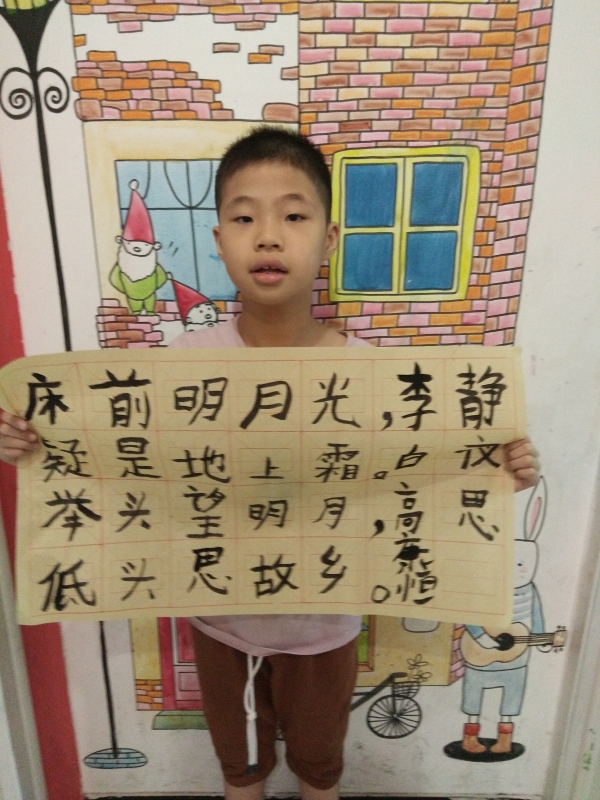 静夜思
李白
床前明月光，
疑是地上霜。
举头望明月，
低头思故乡。
高恒